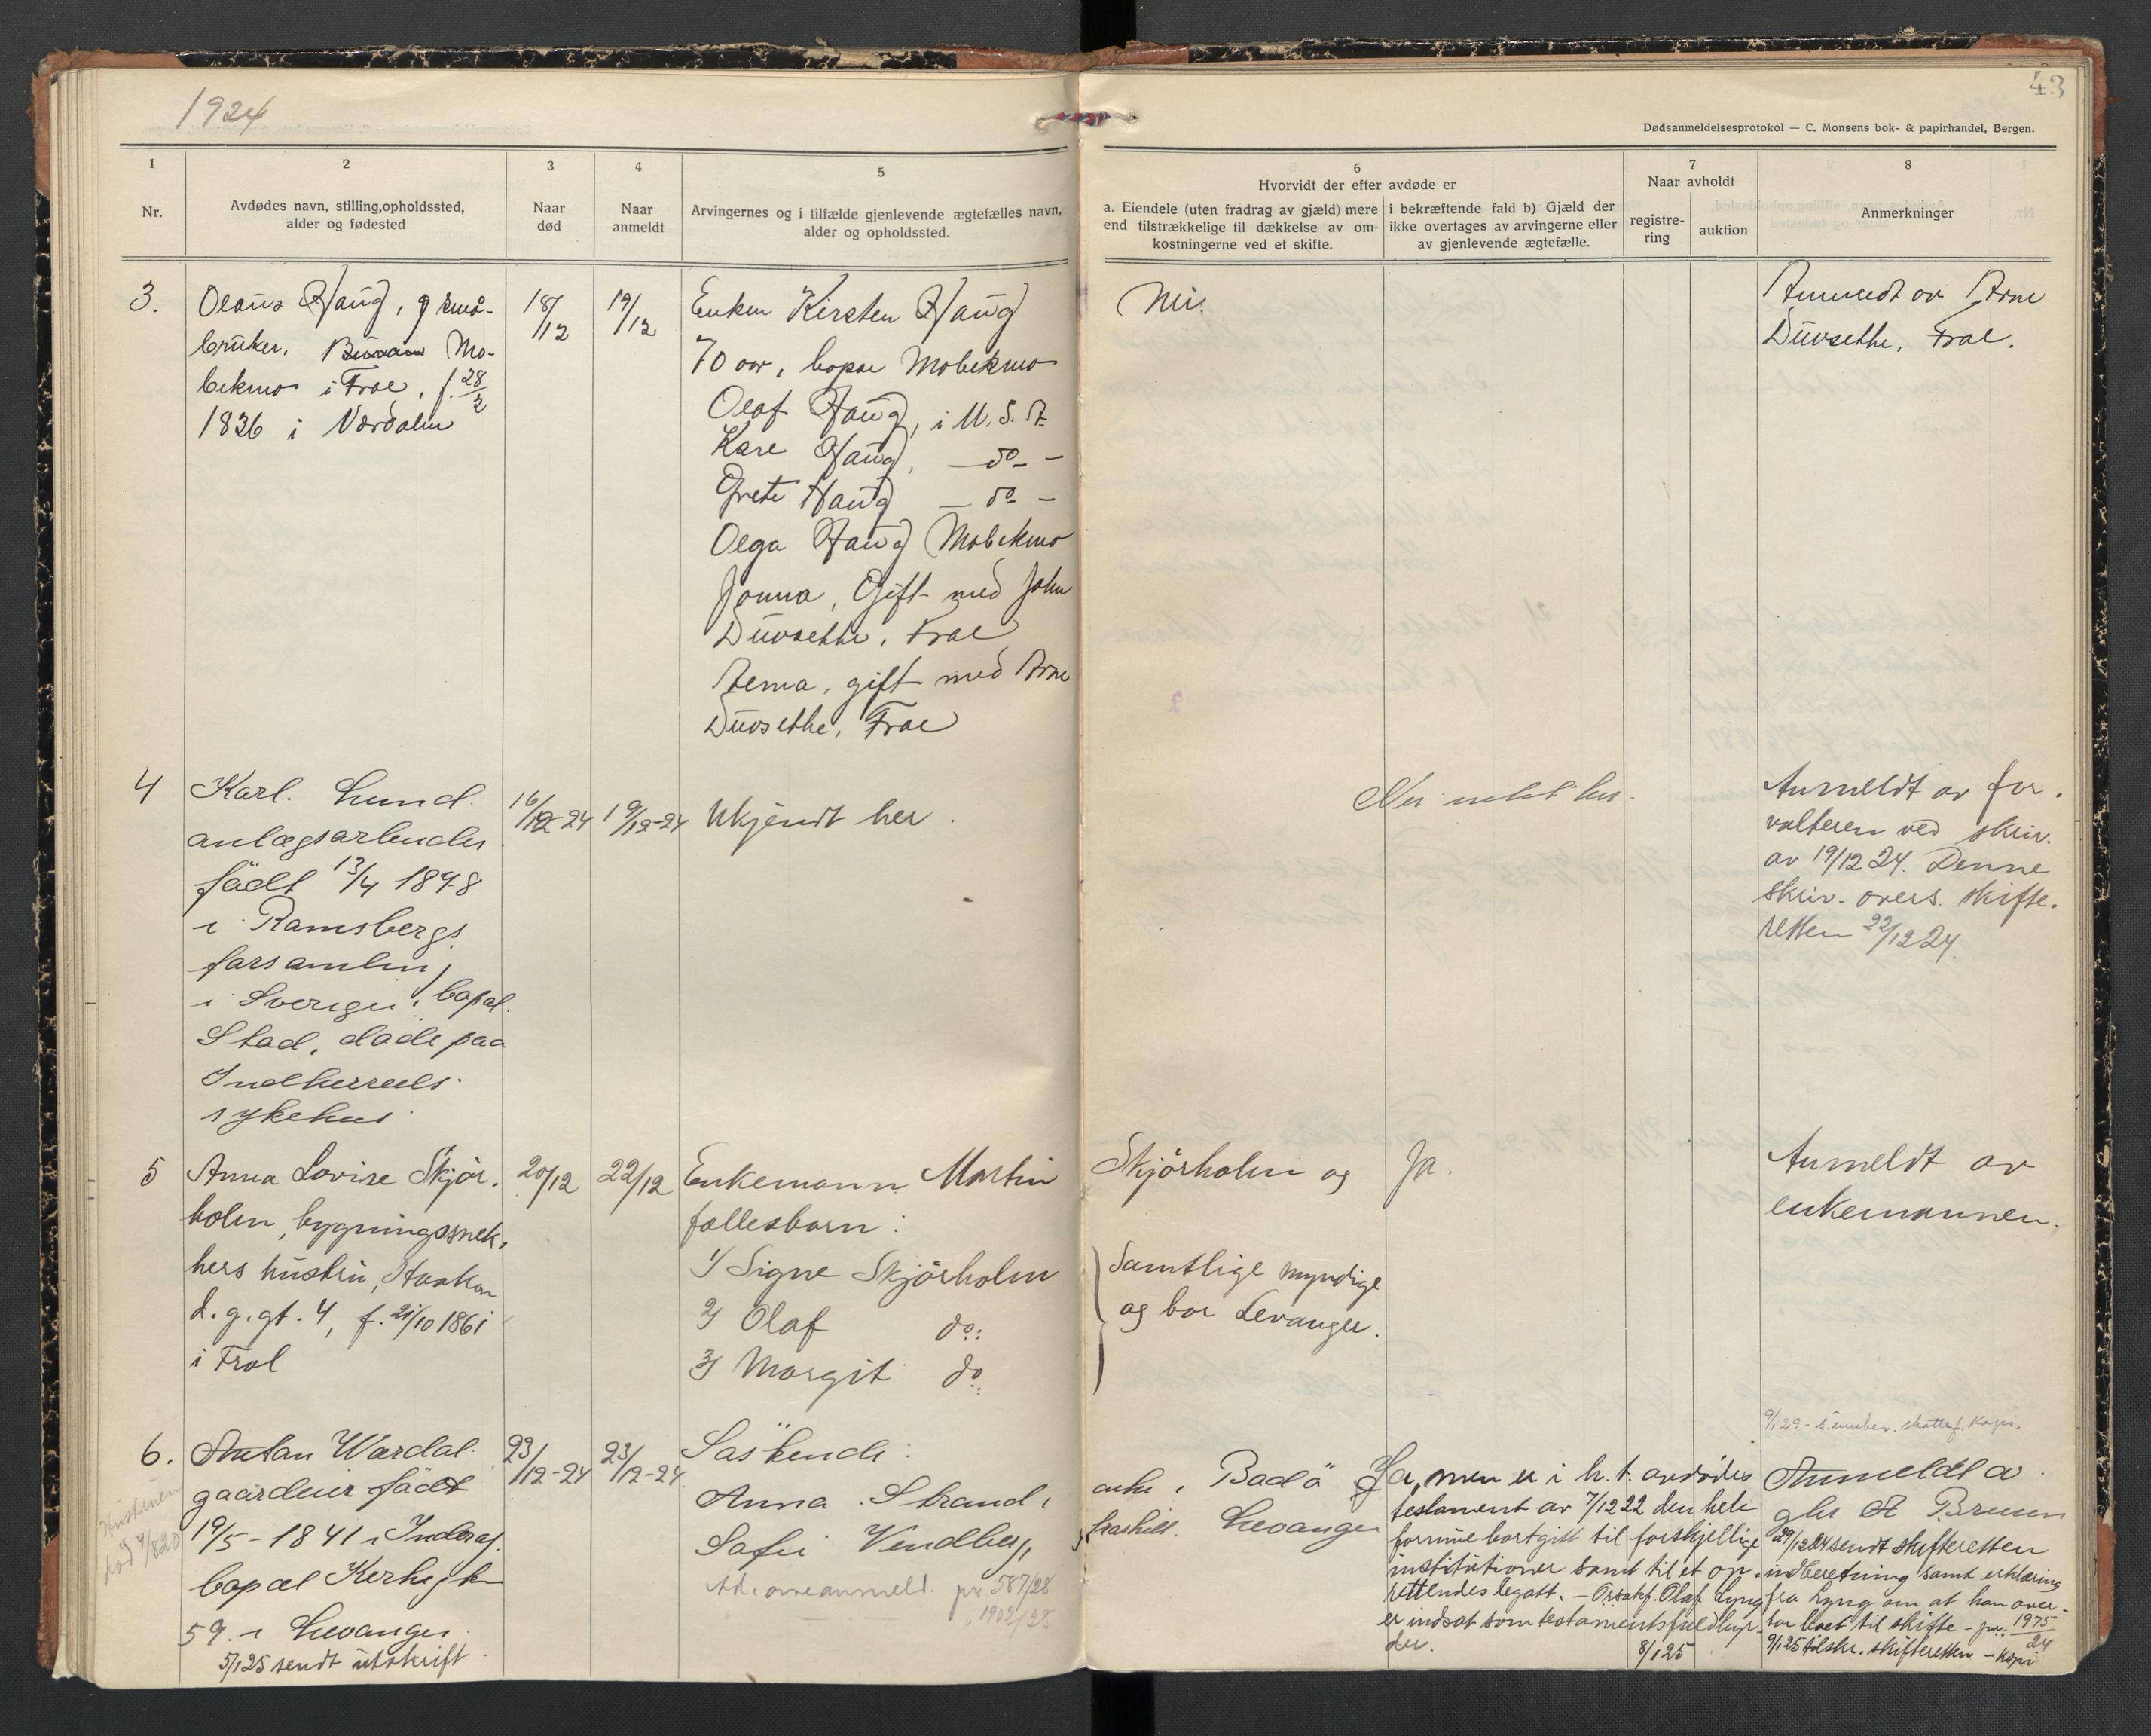 1924
43
Dødsanmeldelsesprotokol — C. Monsens bok- & papirhandel, Bergen.
1
2
3
4
5
6
7
8
Nr.
Avdødes navn, stilling, opholdssted,
alder og fødested
Naar
død
Naar
anmeldt
Arvingernes og i tilfælde gjenlevende ægtefælles navn,
alder og opholdssted.
Hvorvidt der efter avdøde er
a. Eiendele (uten fradrag av gjæld) mere
end tilstrækkelige til dækkelse av om-
kostningerne ved et skifte.
i bekræftende fald b) Gjæld der
ikke overtages av arvingerne eller
av gjenlevende ægtefælle.
Naar avholdt
registre-
ring
auktion
Anmerkninger
3.
Olaus Haug, små-
bruker, Mo-
bekmo i Frol, f. 28/2
1836 i Værdalen
18/12
19/12
Enken Kirsten Haug
70 aar, bopæl Mobekmo
Olaf Haug, i U.S.A.
Kare Haug, — do —
Grete Haug — do —
Olga Haug Mobekmo
Jonna, Gift med John
Duvsethe, Frol
gift med Arne
Duvsethe, Frol
Nei.
Anmeldt av Arne
Duvsethe, Frol.
4
Karl Lund
anlægsarbeider
födt 13/4 1898
i Ramsbergs
forsamling
i Sverige, bopæl.
Stod, døde paa
Indherreds
sykehus
16/12-24
19/12-24
Ukjendt her.
Nei intet her.
Anmeldt av for-
valteren ved skriv.
av 19/12 24. Denne
skriv. overs. skifte-
retten 22/12 24.
5
Anna Lovise Skjör-
holm, bygningssnek-
kers hustru, Haakon
d. g. gt. 4, f. 21/10 1861
i Frol
20/12
22/12
Enkemann Martin Skjörholm og
fællesbarn:
1/ Signe Skjörholm
2/ Olaf do:
3/ Margit do:
Samtlige myndige
og bor Levanger.
Ja.
Anmeldt av
enkemannen.
6.
Anton Wærdal
gaardeier födt
19/5-1841 i Inderøy
bopæl Kirkegt.
59. i Levanger.
5/1 25 sendt utskrift
Hustruen
død
23/12-24
23/12-24
Söskende:
Anna Strand,
enke, Bodö
Sofie Vendberg,
fraskilt. Levanger
587/28
1902/28
Ja, men er i h. t. avdødes
testament av 7/12 22 den hele
formue bortgitt til forskjellige
institutioner samt til et op-
rettendes legatt. — Olaf Lyng
er indsat som testamentsfuldbyr-
der.
8/1 25
9/1 29 -
Anmeldt av
A Bruun
29/12 24 sendt skifteretten
indberetning samt erklæring
fra Lyng om at han over-
tar boet til skifte - jnr. 1975/24
9/1 25 tilskr. skifteretten - kopi